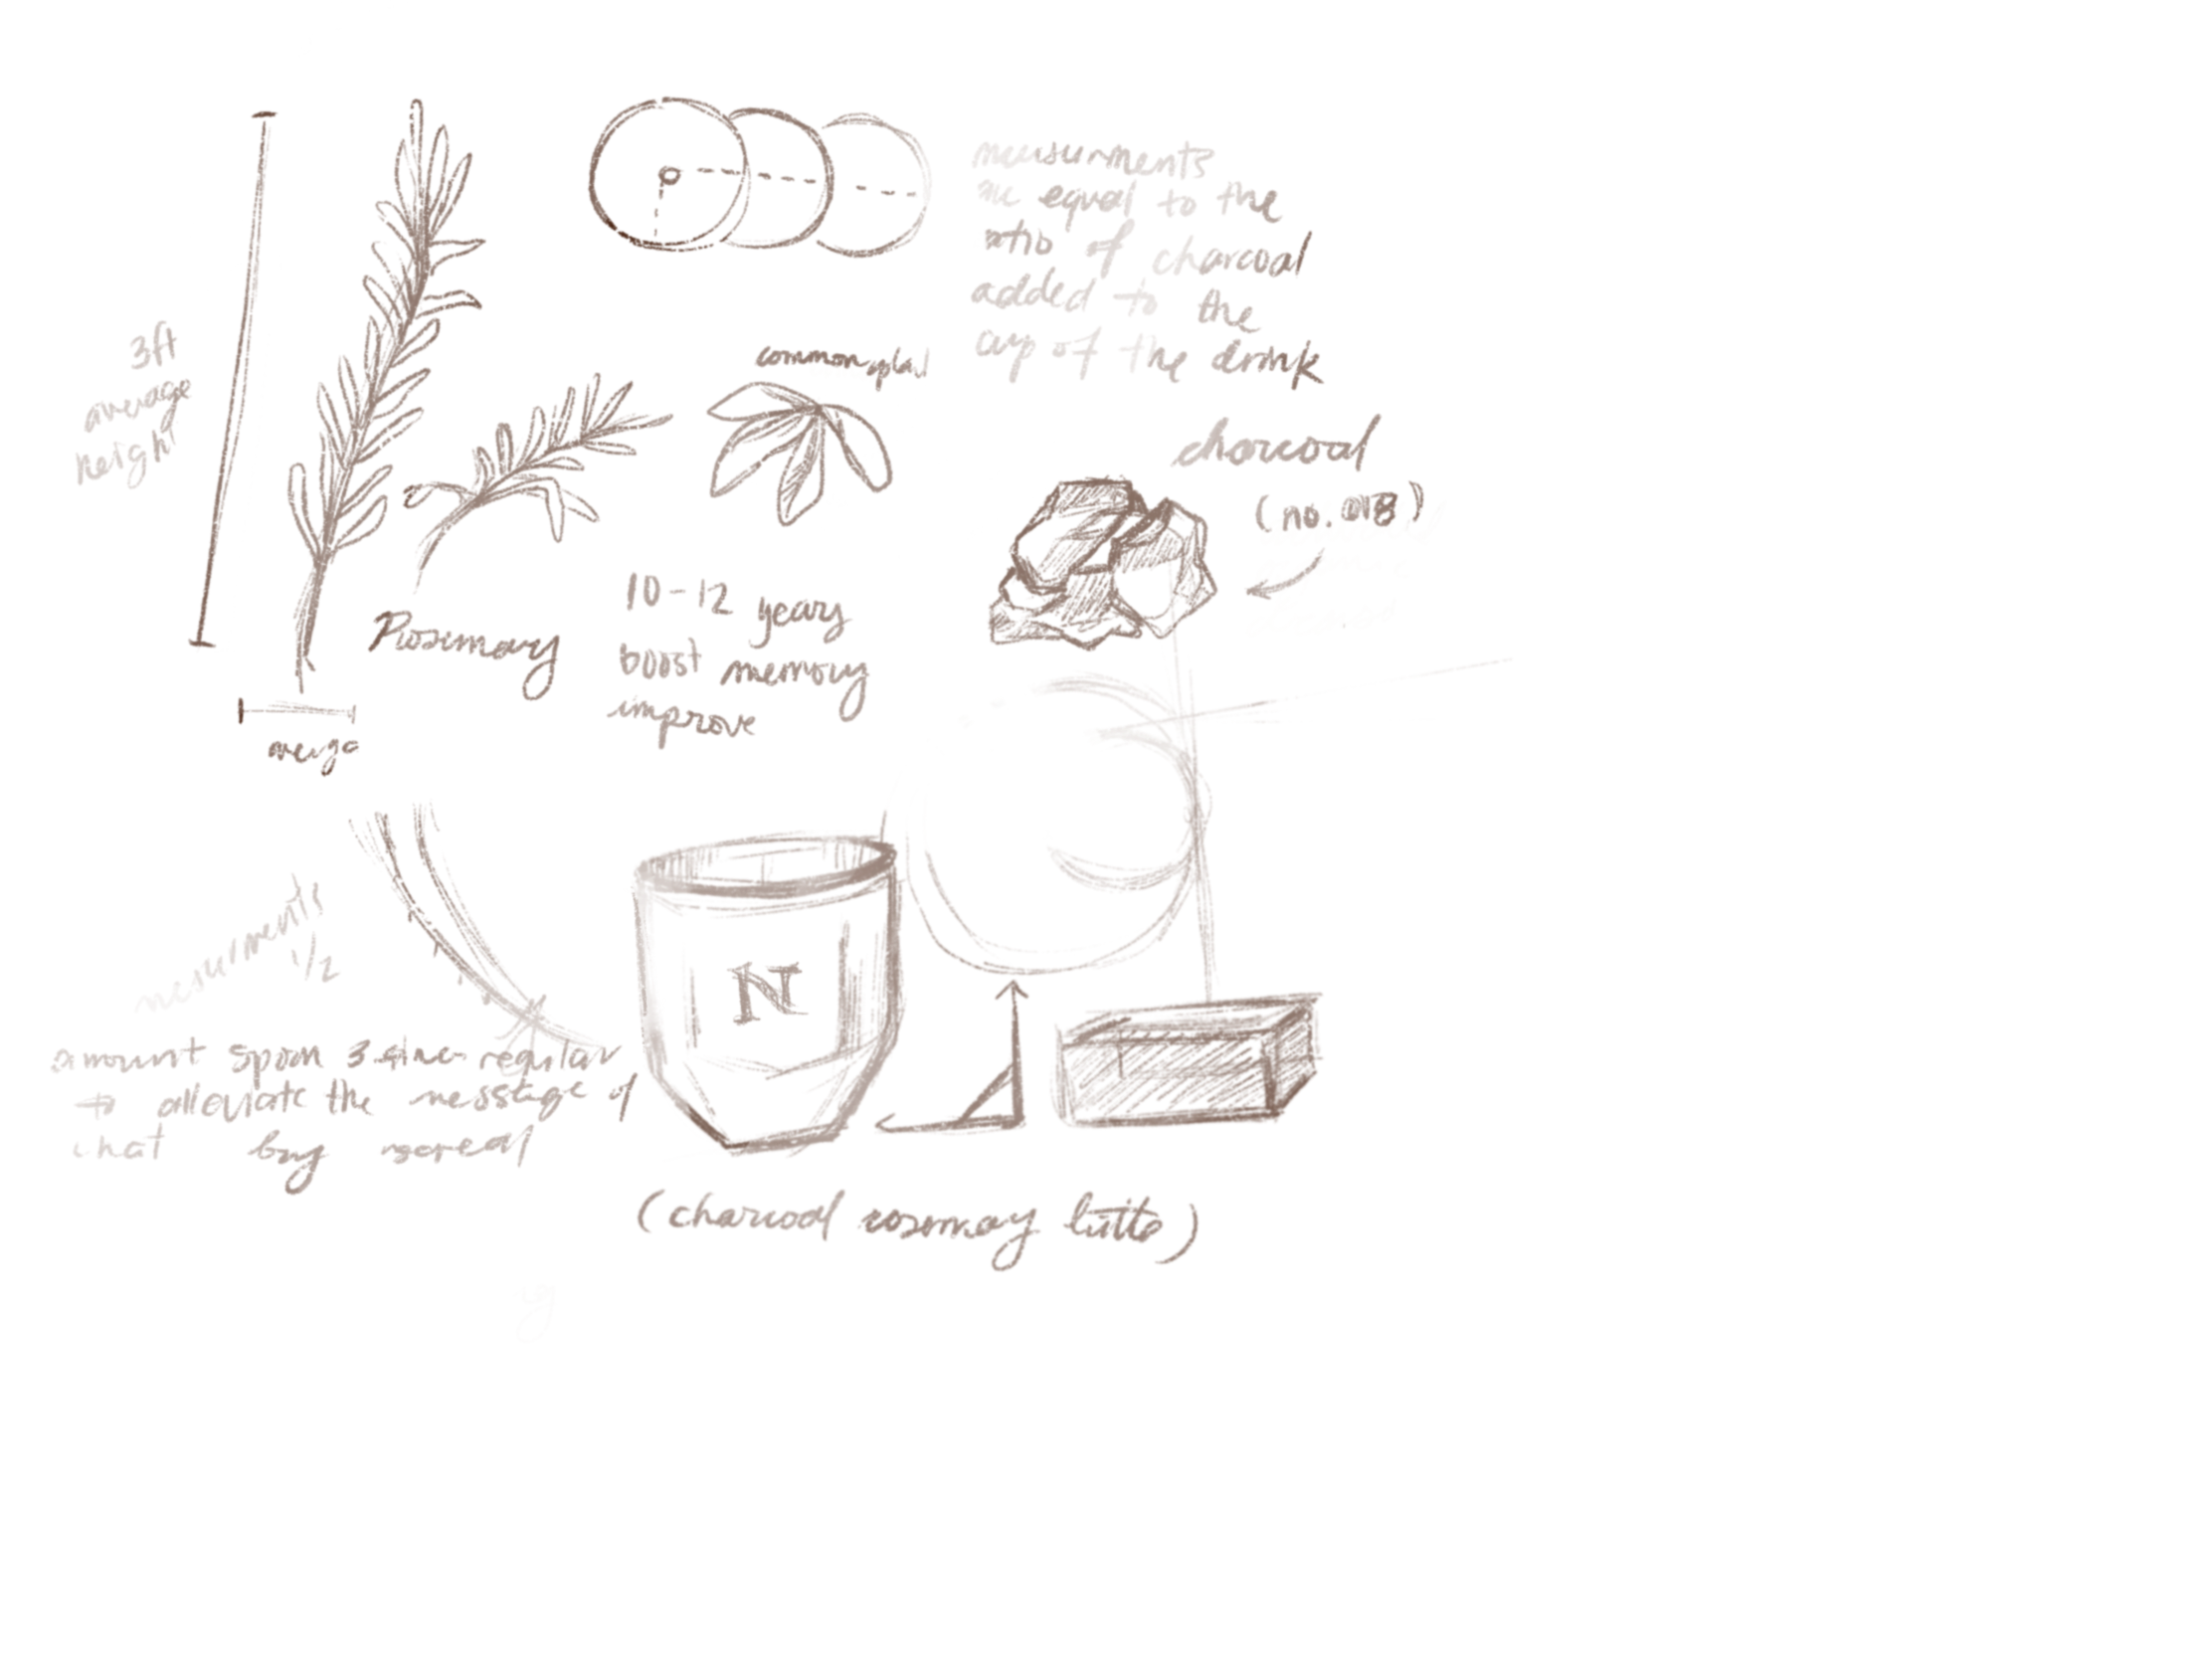 mesurments
are equal to the
ratio of charcoal
added to the
cup of the drink
3ft
average
height
common
charcoal
(no. 018)
Rosemary
10-12 years
boost memory
improve
mesurments
1/2
N
amount spoon 3 regular
to alleviate the message of
that
(charcoal rosemay latte)